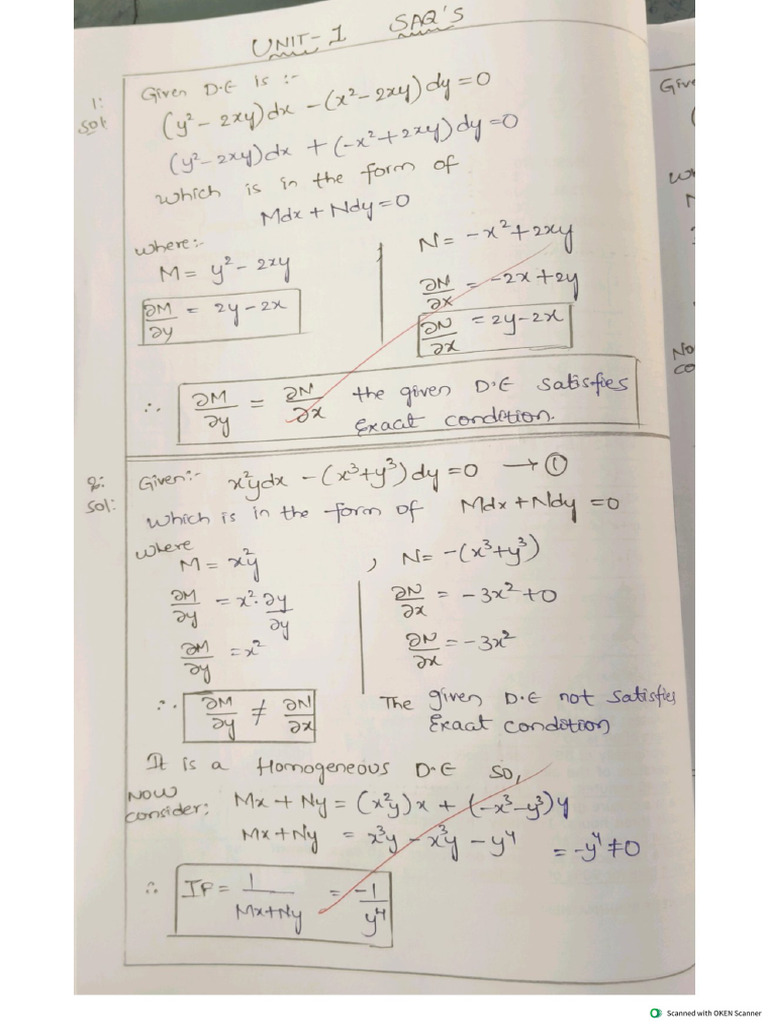 UNIT-1 SAQ'S
1:
Sol:
Given D.E is :-
(y² - 2xy)dx - (x² - 2xy)dy = 0
(y² - 2xy)dx + (-x² + 2xy)dy = 0
which is in the form of
Mdx + Ndy = 0
where:-
M = y² - 2xy
∂M/∂y = 2y - 2x
N = -x² + 2xy
∂N/∂x = -2x + 2y
∂N/∂x = 2y - 2x
∴ ∂M/∂y = ∂N/∂x the given D.E satisfies
Exact condition.
2:
Sol:
Given:- x²ydx - (x³+y³)dy = 0 → ①
which is in the form of Mdx + Ndy = 0
where
M = x²y , N = -(x³+y³)
∂M/∂y = x². ∂y/∂y
∂M/∂y = x²
∂N/∂x = -3x² + 0
∂N/∂x = -3x²
∴ ∂M/∂y ≠ ∂N/∂x The given D.E not satisfies
Exact condition
It is a Homogeneous D.E so,
Now
consider: Mx + Ny = (x²y)x + (-x³-y³)y
Mx + Ny = x³y - x³y - y⁴ = -y⁴ ≠ 0
∴ IF = 1/Mx+Ny = -1/y⁴
Give
No
co
Scanned with OKEN Scanner